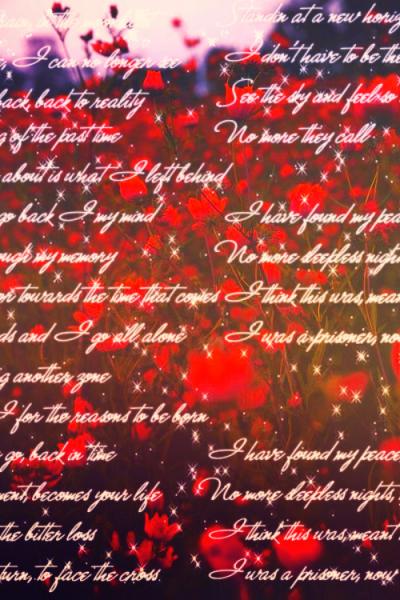 in the
e, I can no longer see
back, back to reality
g of the past time
about is what I left behind
go back I my mind
ough my memory
or towards the time that comes
ds and I go all alone
g another zone
I for the reasons to be born
go, back in time
ment, becomes your life
the bitter loss
turn, to face the cross.
Standin at a new horiz
I don't have to be the
See the sky and feel so
No more they call
I have found my pea
No more sleepless night
I think this was, mean
I was a prisoner, no
I have found my peace
No more sleepless nights,
I think this was, meant
I was a prisoner, now